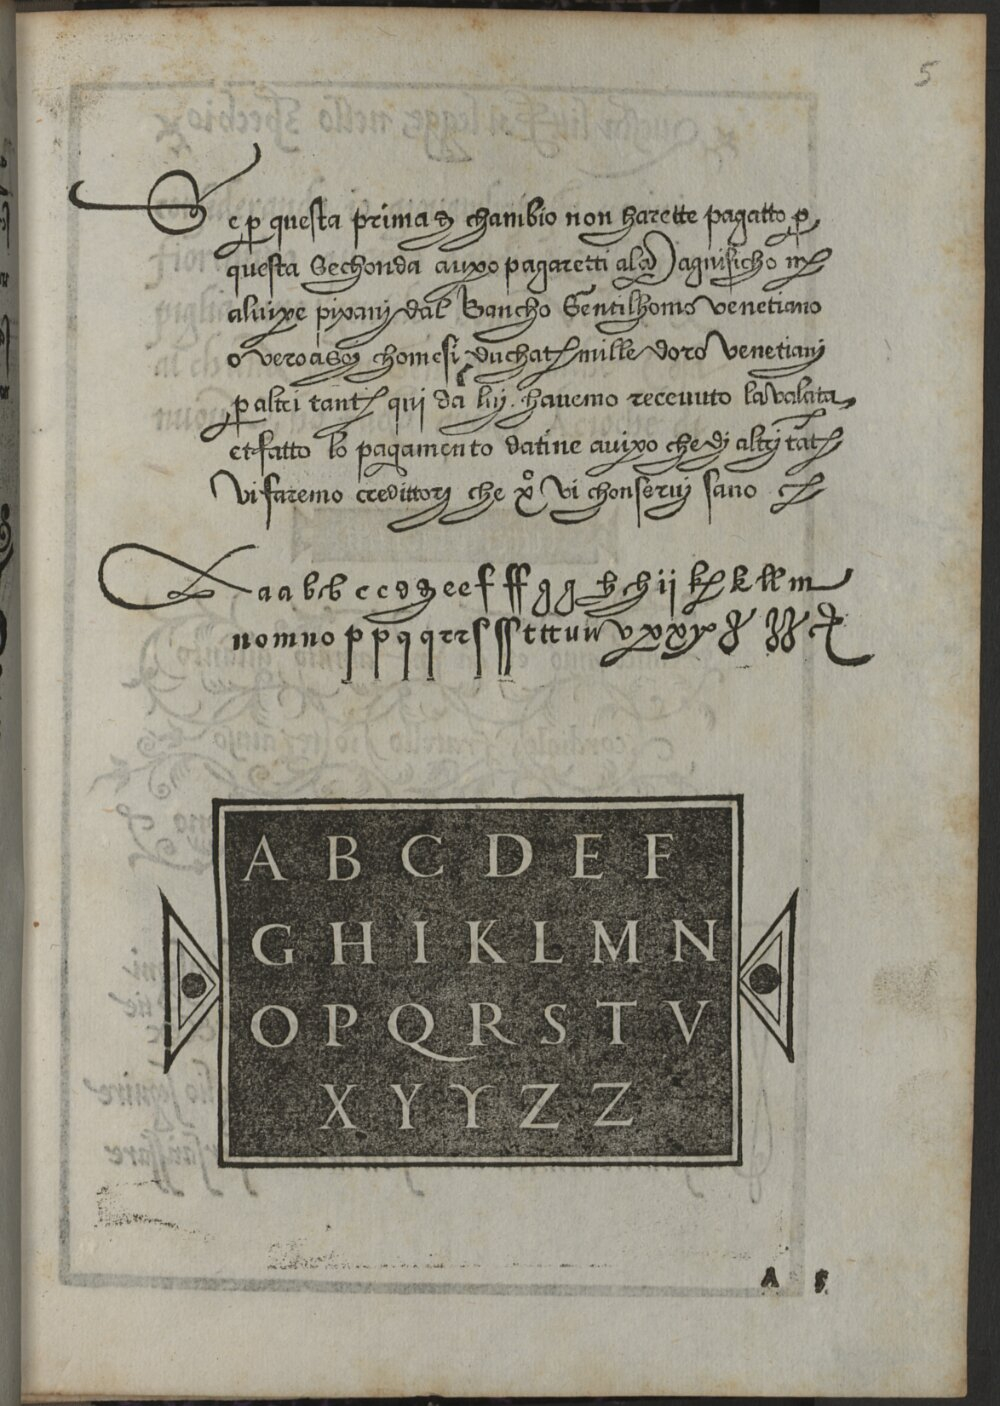 5
Se p questa prima di chambio non harette pagatto p
questa Sechonda auixo pagaretti ala Magnificho mr
aluixe pixanj dal Bancho Gentilhomo Venetiano
o vero a suoj chomessi duchati mille doro Venetianj
p altri tantj qui da luj. hauemo receuuto la valuta
et fatto lo pagamento datine auixo che dj altrj tātj
Vi faremo credittorj che xo Vi chonseruj sano
a a b b c c d d e e f ff g g h h ii k k ll m
n o m n o p p q q r r s ss t tt u u v x x y
A B C D E F
G H I K L M N
O P Q R S T V
X Y Y Z Z
A 5